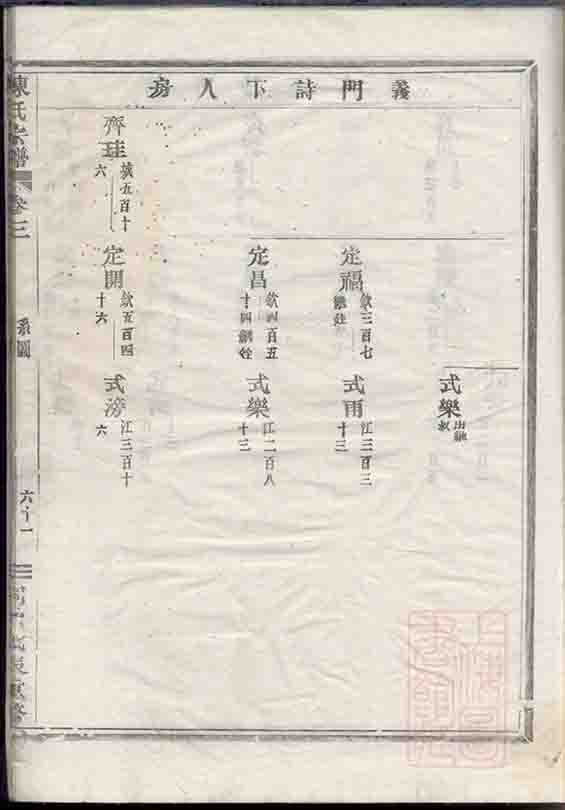 義門詩下人房
式樂
出繼
叔
定福
欽三百七
繼姪
式雨
江三百三
十三
定昌
欽四百五
十四繼姪
式樂
江二百八
十三
齊珪
城五百十
六
定開
欽五百四
十六
式滂
江三百十
六
陳氏宗譜
卷三
系圖
六十一